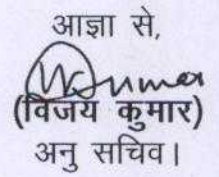 आज्ञा से,
(विजय कुमार)
अनु सचिव।